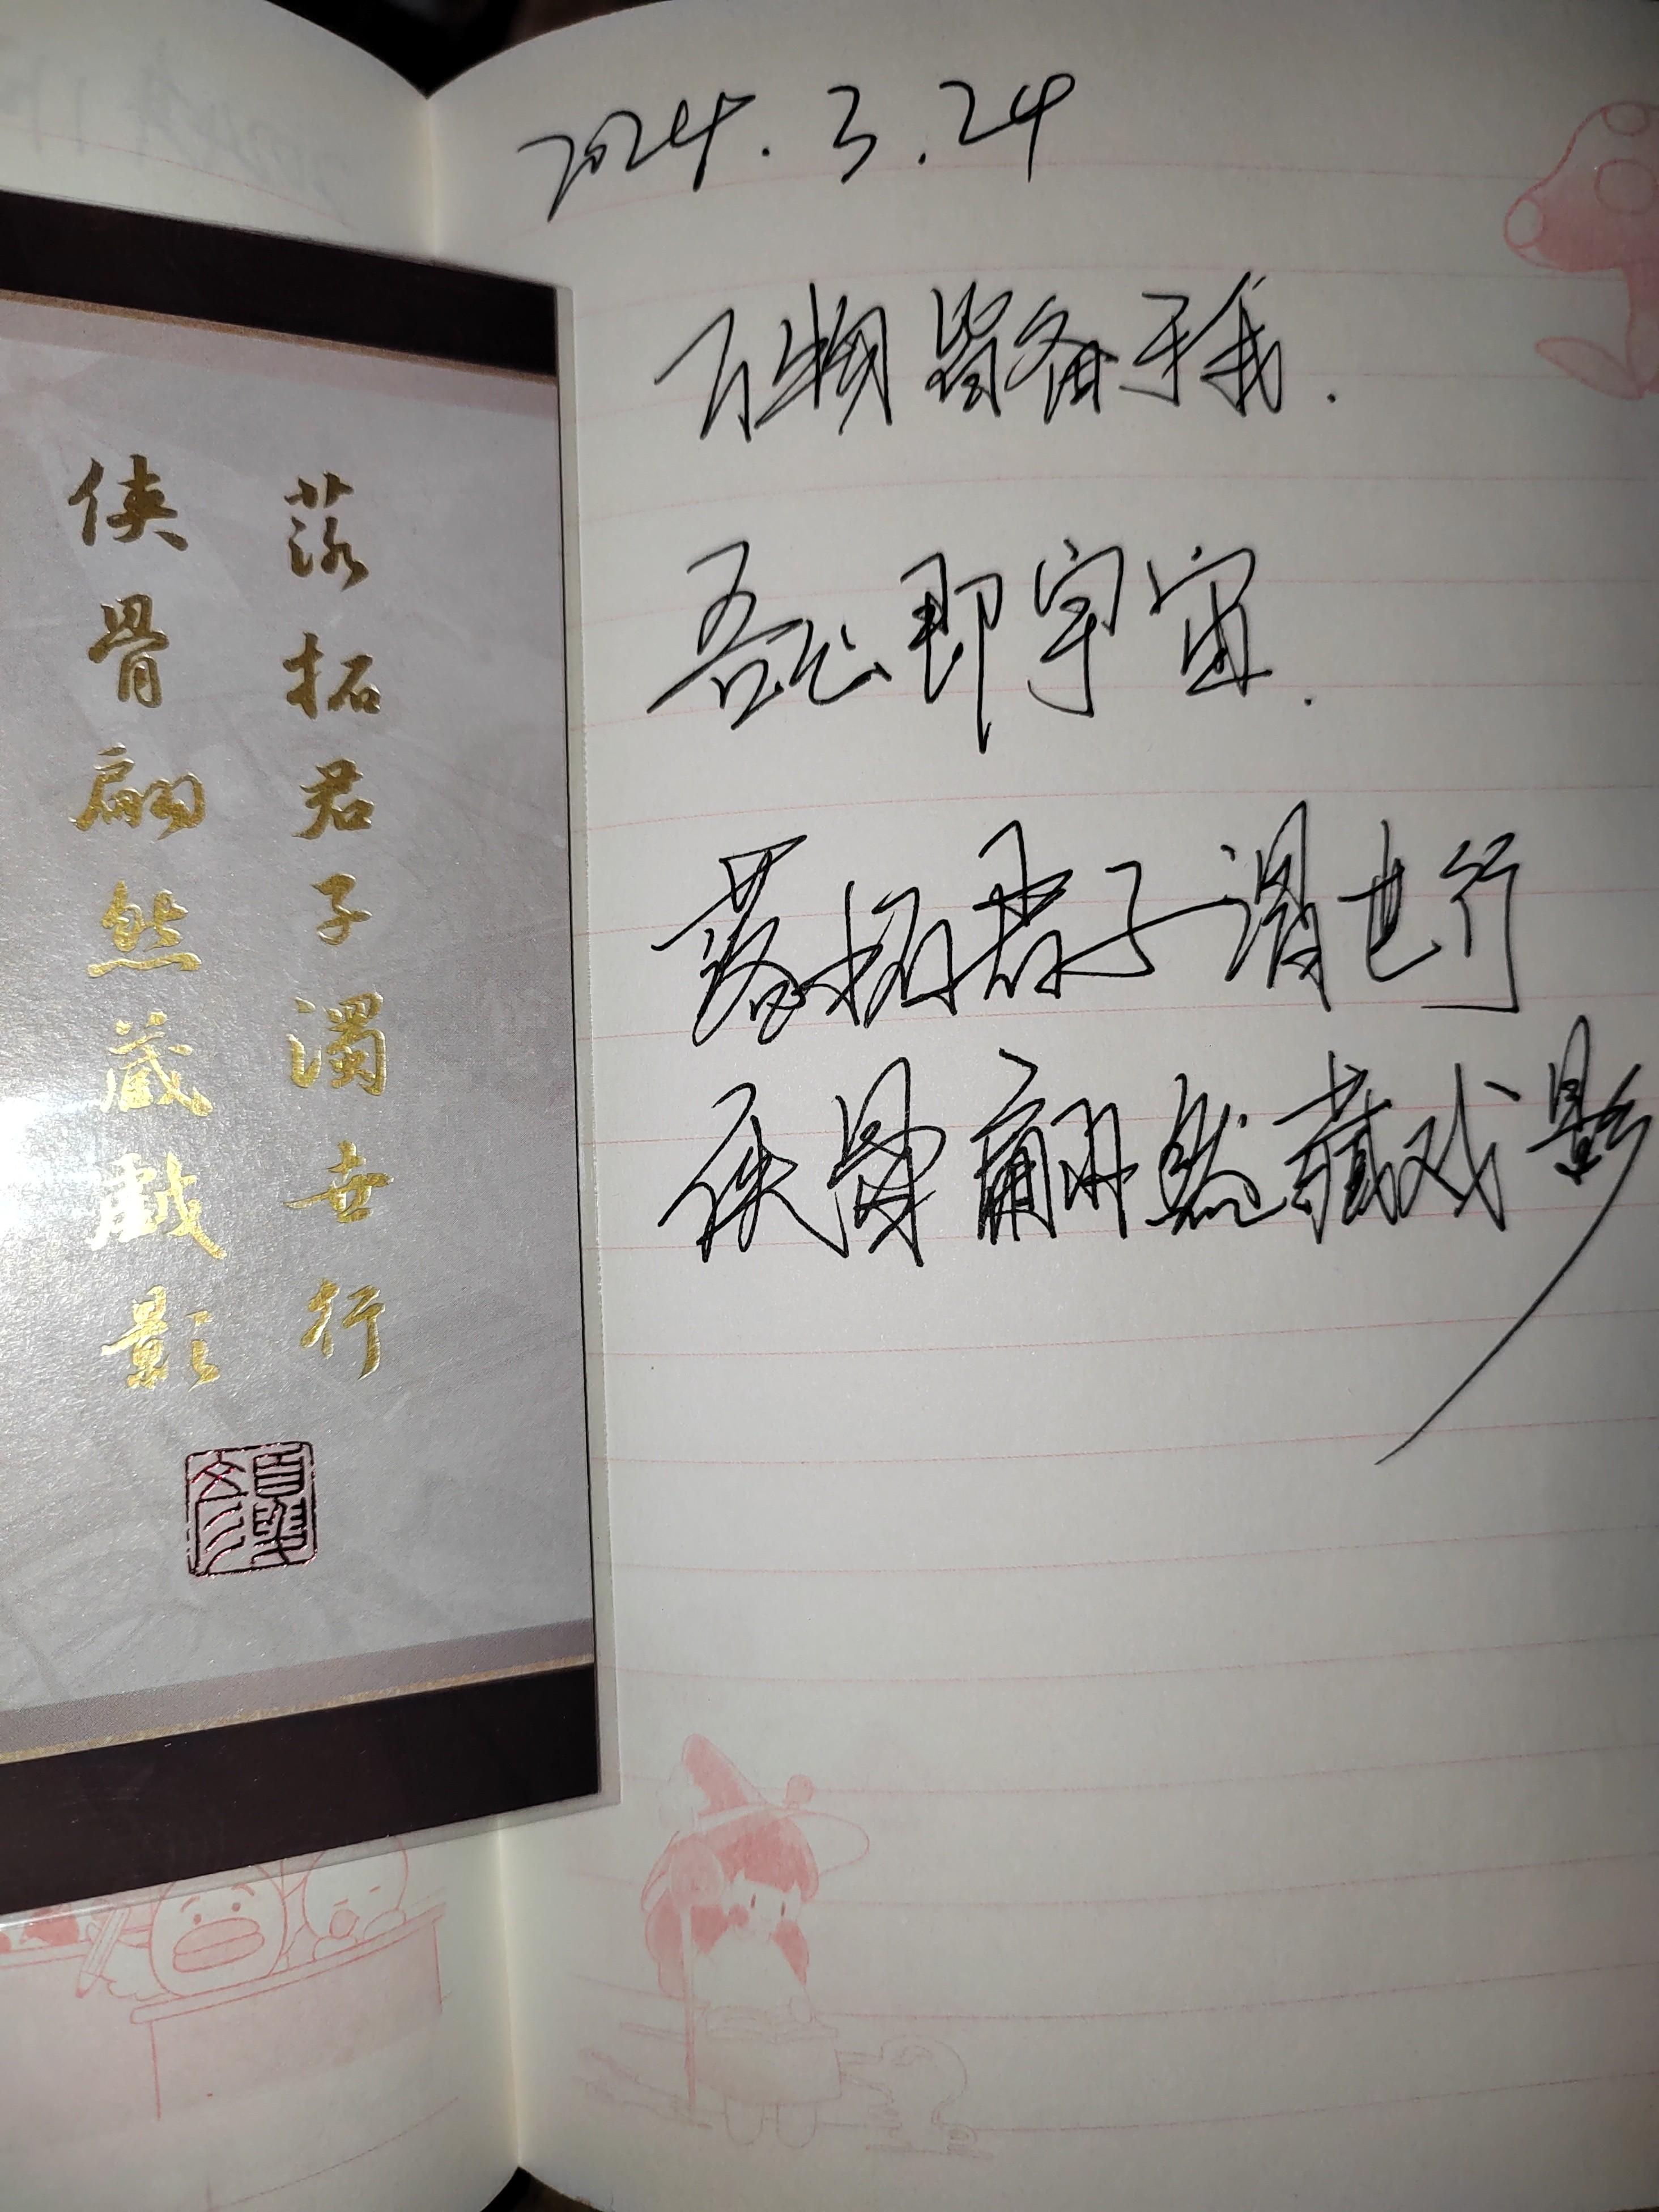 落拓君子濁世行
俠骨翩然藏戲影
2024.3.24
万物皆备于我.
吾心即宇宙.
落拓君子世行
侠骨翩然藏戏影